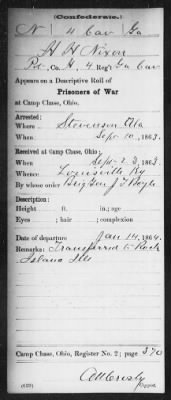 (Confederate.)
N 4 Cav Ga
H H Nixon
Pvt, Co. H, 4 Reg't Ga Cav
Appears on a Descriptive Roll of
Prisoners of War
at Camp Chase, Ohio.
Arrested:
Where Stevenson Ala
When Sept 10, 1863.
Received at Camp Chase, Ohio:
When Sept 23, 1863.
Whence Louisville Ky
By whose order Brig Gen J T Boyle
Description:
Height ft. in.; age
Eyes ; hair ; complexion
Date of departure Jan 14, 1864.
Remarks: Transferred to Rock
Island Ills
Camp Chase, Ohio, Register No. 2; page 370
(639)
Copyist.